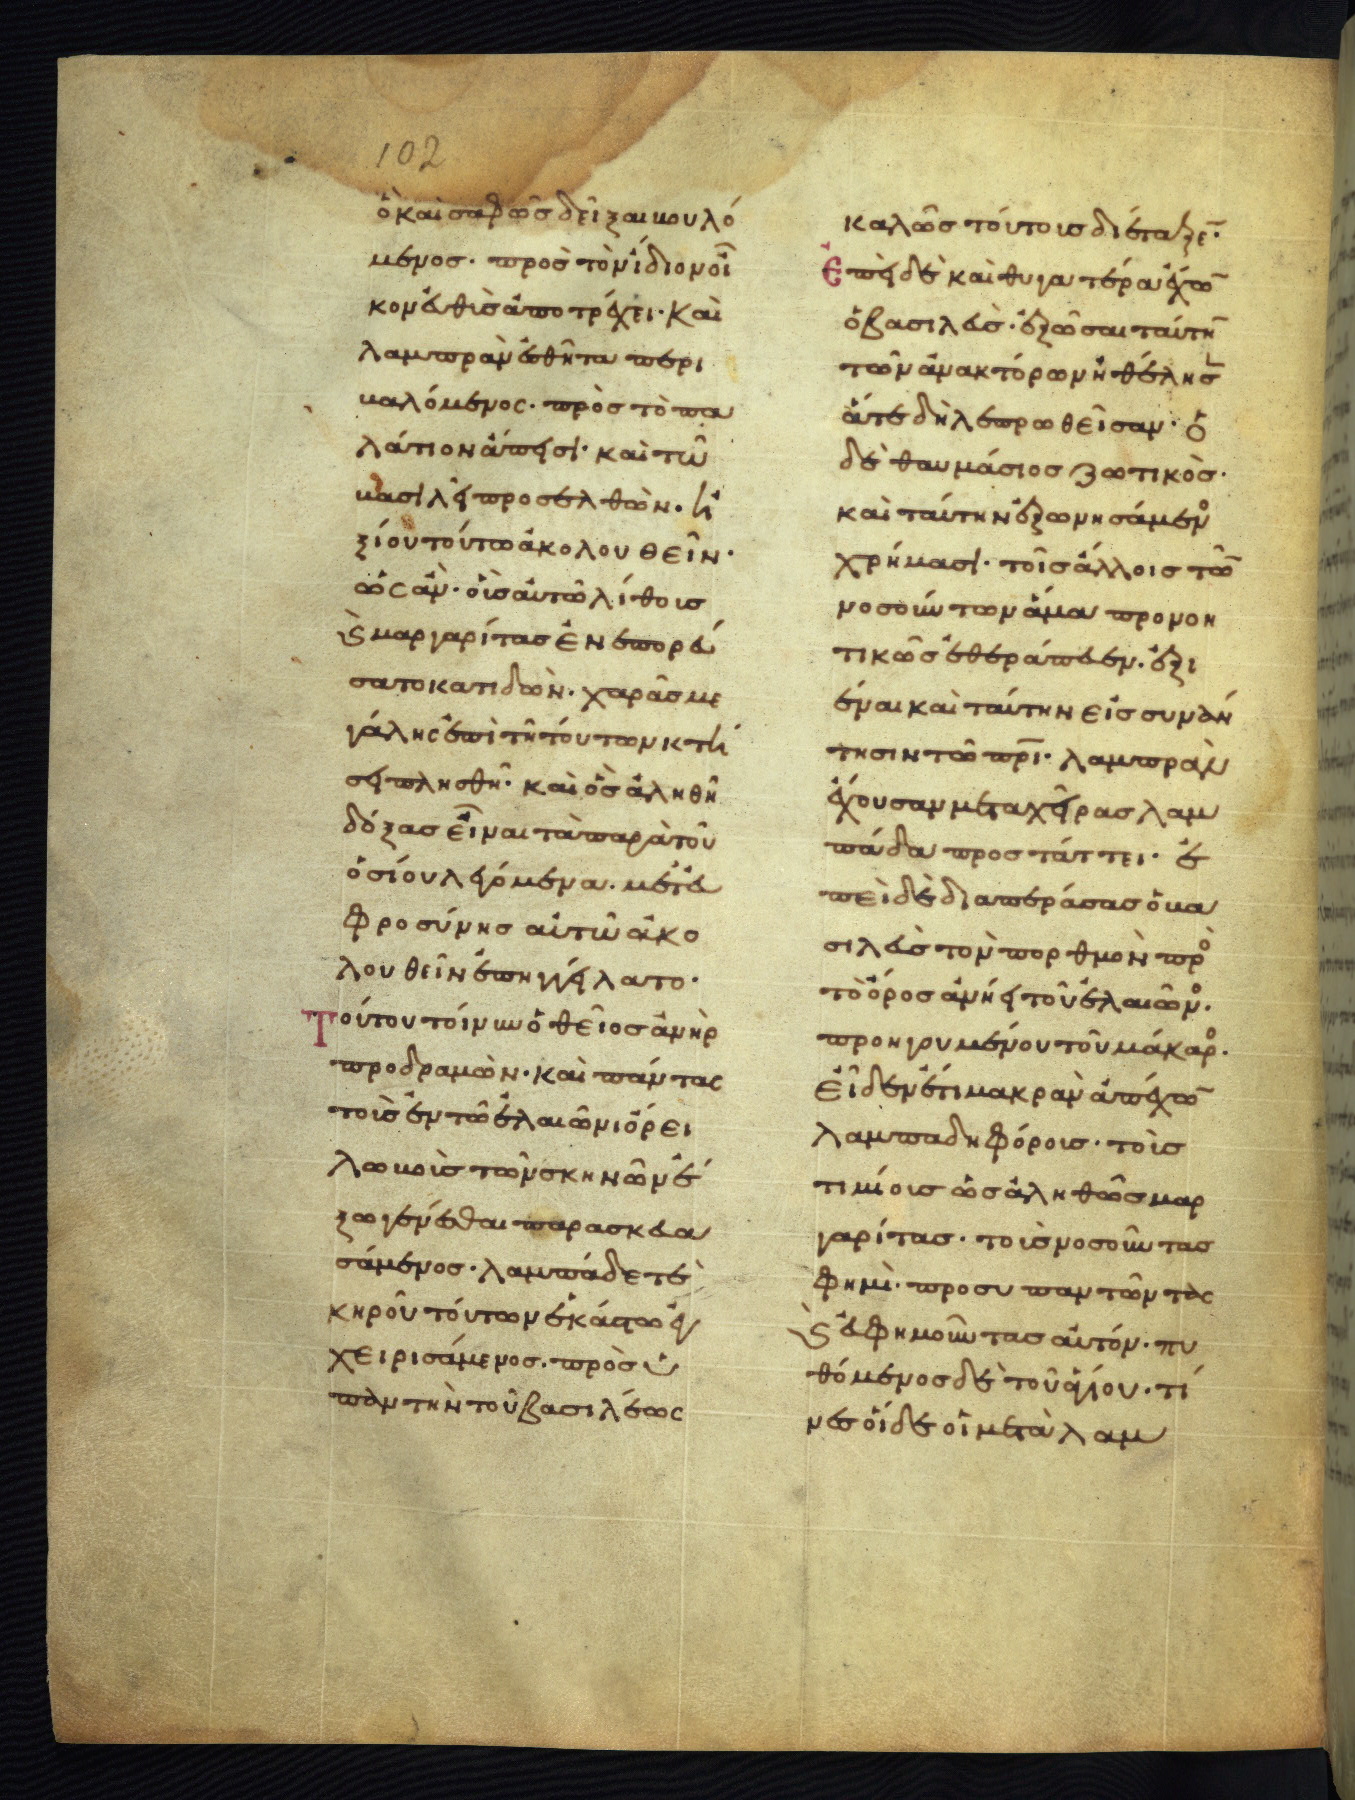 102
ὃ καὶ σαφῶς δεῖξαι βουλό
μενος· πρὸς τὸν ἴδιον οἶ
κον εὐθὺς ἀποτρέχει· καὶ
λαμπρὰν ἐσθῆτα περι
βαλόμενος· πρὸς τὸ πα
λάτιον ἄπεισι· καὶ τῶ
βασιλεῖ προσελθὼν· ἠ
ξίου τούτω ἀκολουθεῖν·
ὡς ἂν· οἷς αὐτῶ λίθοις
ϗ μαργαρίτας ἐνεπορεύ
σατο κατιδὼν· χαρᾶς με
γάλης ἐπὶ τῆ τούτων κτή
σει πλησθῆ· καὶ ὃς ἀληθῆ
δόξας εἶναι τὰ παρὰ τοῦ
ὁσίου λεγόμενα· μετ' εὐ
φροσύνης αὐτῶ ἀκο
λουθεῖν ἐπηγγείλατο·
Τούτου τοίνυν ὁ θεῖος ἀνὴρ
προδραμὼν· καὶ πάντας
τοὺς ἐν τῶ ἐλαιῶνι ὄρει
λωβοὺς τῶν σκηνῶν ἔ
ξω γενέσθαι παρασκευα
σάμενος· λαμπάδε τὲ
κηροῦ τούτων ἑκάστω ἐγ
χειρισάμενος· πρὸς ὑ
παντὴν τοῦ βασιλέως
καλῶς τούτοις διέταξε·
Ἐπεὶ δὲ καὶ θυγατέρα ἔχων
ὁ βασιλεὺς· ἐξῶσαι ταύτην
τῶν ἀνακτόρων ἠθέλησεν
ἅτε δὴ λεπρωθεῖσαν· ὁ
δὲ θαυμάσιος ζωτικὸς·
καὶ ταύτην ἐξωνησάμενος
χρήμασι· τοῖς ἄλλοις τῶν
νοσούντων ἅμα προνοη
τικῶς ἐθεράπευεν· ἐξι
έναι καὶ ταύτην εἰς συνάν
τησιν τῶ πρι· λαμπρὰν
ἔχουσαν μετὰ χεῖρας λαμ
πάδα προστάττει· ἐ
πεὶ δὲ διαπεράσας ὁ βα
σιλεὺς τὸν πορθμὸν πρὸς
τὸ ὄρος ἀνήει τοῦ ἐλαιῶνος·
προηγουμένου τοῦ μάκαρος·
εἶδεν ἔτι μακρὰν ἀπέχων
λαμπαδηφόροις· τοὺς
τιμίους ὡς ἀληθῶς μαρ
γαρίτας· τοὺς νοσοῦντας
φημὶ· προσυπαντῶντας
ϗ εὐφημοῦντας αὐτόν· πυ
θόμενος δὲ τοῦ ἁγίου· τί
νες οἵδε οἱ μετὰ λαμ